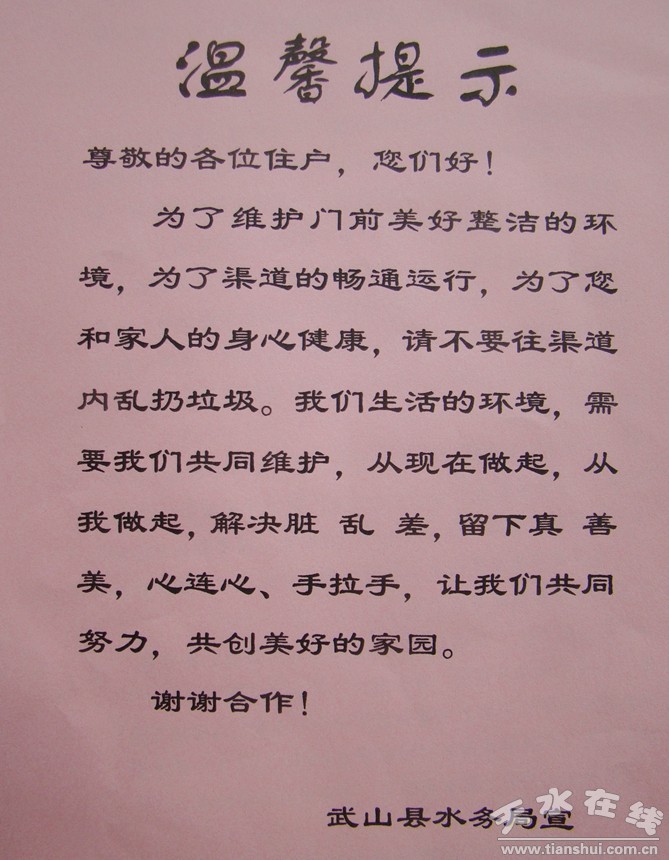 温馨提示
尊敬的各位住户，您们好！
为了维护门前美好整洁的环
境，为了渠道的畅通运行，为了您
和家人的身心健康，请不要往渠道
内乱扔垃圾。我们生活的环境，需
要我们共同维护，从现在做起，从
我做起，解决脏 乱 差，留下真 善
美，心连心、手拉手，让我们共同
努力，共创美好的家园。
谢谢合作！
武山县水务局宣
天水在线
www.tianshui.com.cn